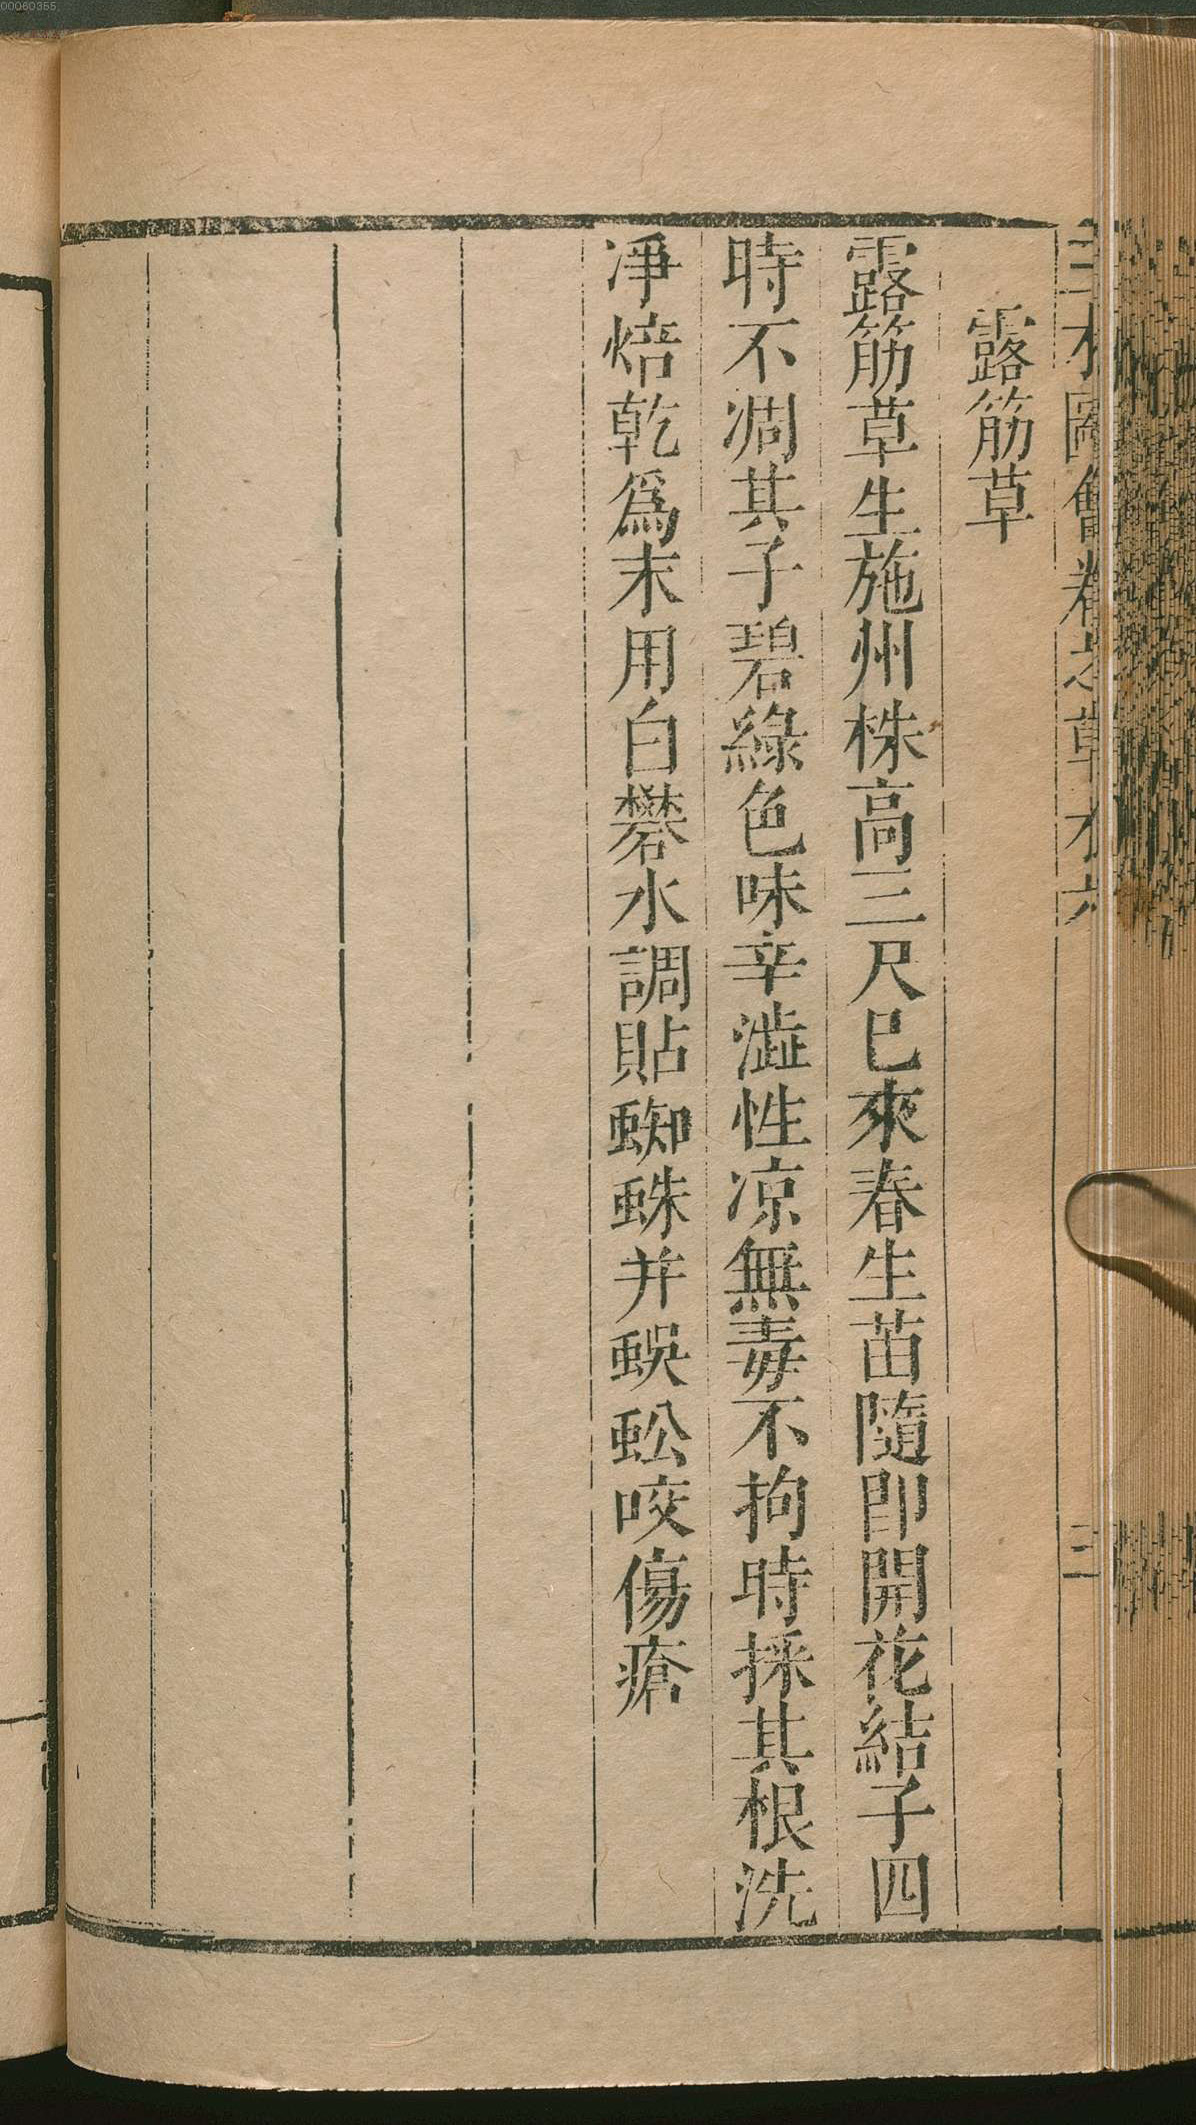 00060355
三才圖會卷之草木六
三
露筋草
露筋草生施州株高三尺巳來春生苗隨即開花結子四
時不凋其子碧綠色味辛澁性凉無毒不拘時採其根洗
凈焙乾爲末用白礬水調貼蜘蛛并蜈蚣咬傷瘡